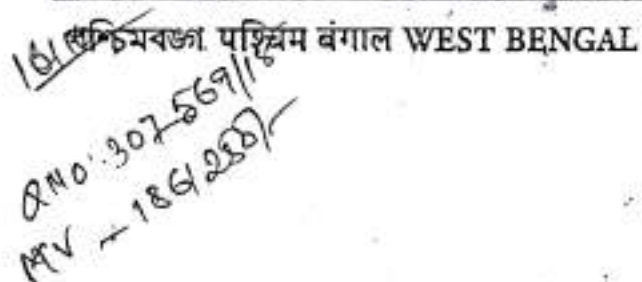 পশ্চিমবঙ্গ पश्चिम बंगाल WEST BENGAL
QNO: 307569/18
MV - 186288/-